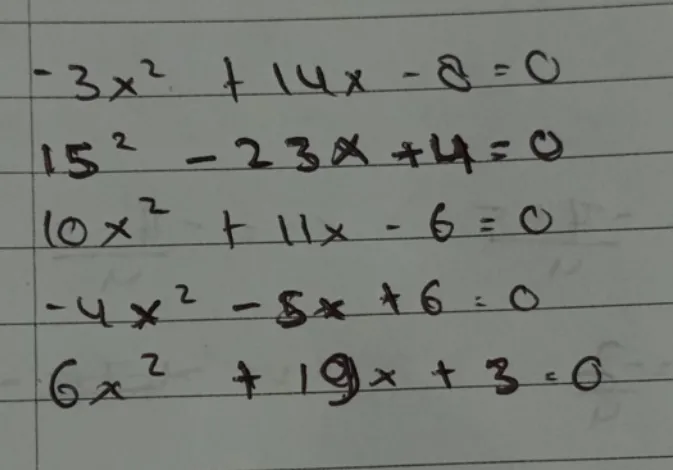 -3x² + 14x - 8 = 0
15² - 23x + 4 = 0
10x² + 11x - 6 = 0
-4x² - 5x + 6 = 0
6x² + 19x + 3 = 0